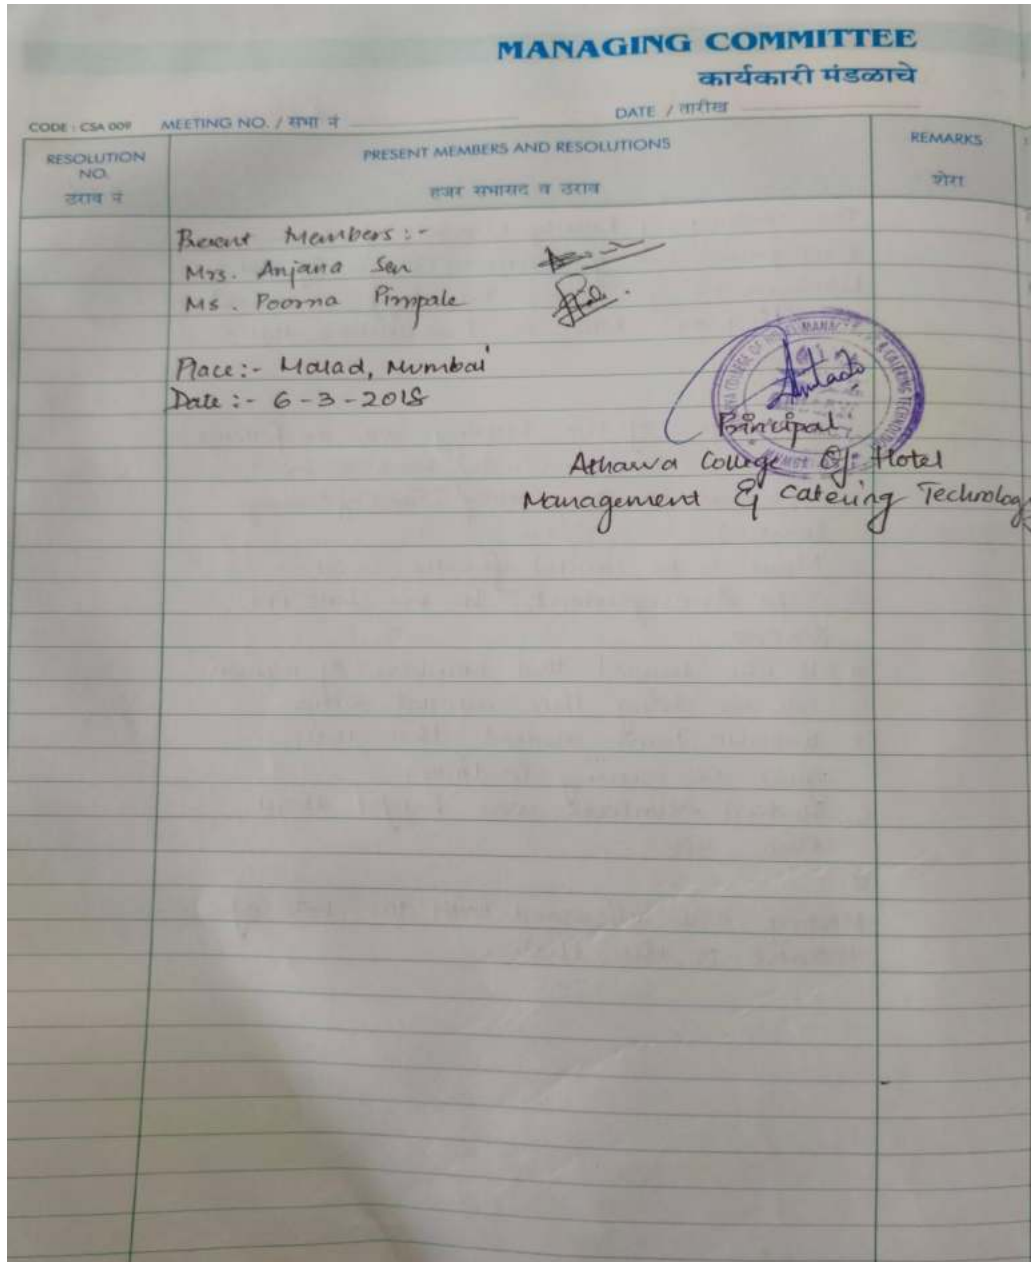 MANAGING COMMITTEE
कार्यकारी मंडळाचे
CODE : CSA 009 MEETING NO. / सभा नं DATE / तारीख
RESOLUTION NO. PRESENT MEMBERS AND RESOLUTIONS REMARKS
ठराव नं हजर सभासद व ठराव शेरा
Present Members :-
Mrs. Anjana Sen
Ms. Poorna Pimpale
Place :- Malad, Mumbai
Date :- 6-3-2018
Principal
Atharva College Of Hotel
Management & Catering Technology